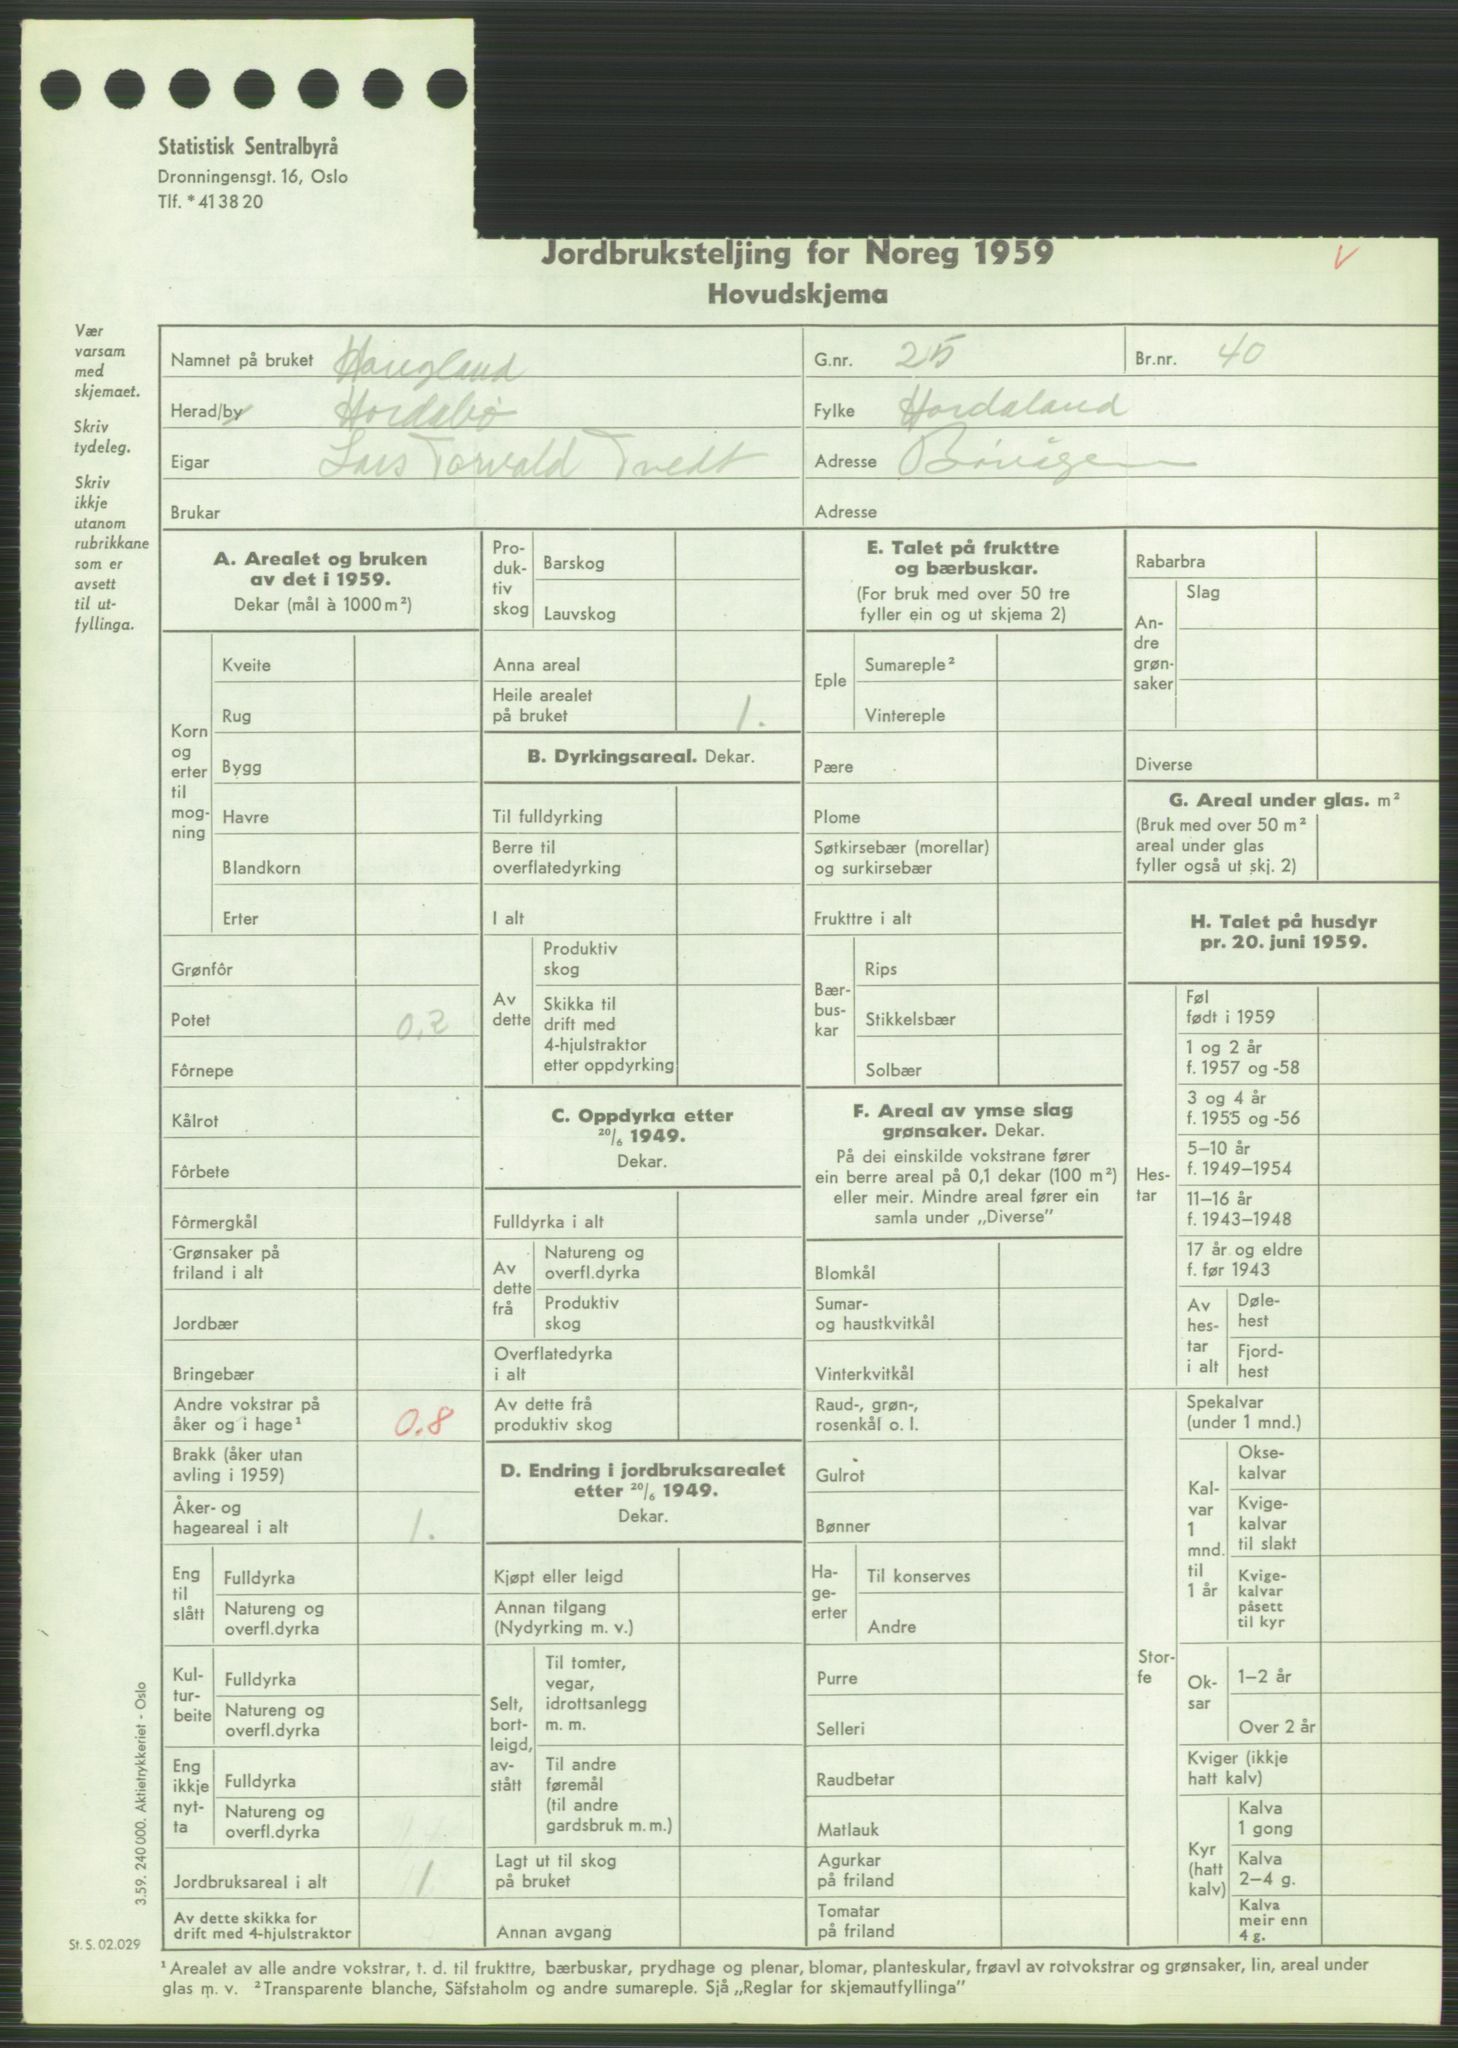 Statistisk Sentralbyrå
Dronningensgt. 16, Oslo
Tlf. * 41 38 20
Jordbruksteljing for Noreg 1959
V
Hovudskjema
Vær
varsam
med
skjemaet.
Skriv
tydeleg.
Skriv
ikkje
utanom
rubrikkane
som er
avsett
til ut-
fyllinga.
Namnet på bruket Haugland
G.nr. 25
Br.nr. 40
Herad/by Hordabø
Fylke Hordaland
Eigar Lars Torvald Tvedt
Adresse Bøvågen
Brukar
Adresse
A. Arealet og bruken
av det i 1959.
Dekar (mål à 1000 m²)
Korn
og
erter
til
mog-
ning
Kveite
Rug
Bygg
Havre
Blandkorn
Erter
Grønfôr
Potet 0,2
Fôrnepe
Kålrot
Fôrbete
Fôrmergkål
Grønsaker på
friland i alt
Jordbær
Bringebær
Andre vokstrar på
åker og i hage¹ 0.8
Brakk (åker utan
avling i 1959)
Åker- og
hageareal i alt 1.
Eng
til
slått
Fulldyrka
Natureng og
overfl.dyrka
Kul-
tur-
beite
Fulldyrka
Natureng og
overfl.dyrka
Eng
ikkje
nyt-
ta
Fulldyrka
Natureng og
overfl.dyrka
Jordbruksareal i alt 1
Av dette skikka for
drift med 4-hjulstraktor
Pro-
duk-
tiv
skog
Barskog
Lauvskog
Anna areal
Heile arealet
på bruket 1.
B. Dyrkingsareal. Dekar.
Til fulldyrking
Berre til
overflatedyrking
I alt
Av
dette
Produktiv
skog
Skikka til
drift med
4-hjulstraktor
etter oppdyrking
C. Oppdyrka etter
20/6 1949.
Dekar.
Fulldyrka i alt
Av
dette
frå
Natureng og
overfl.dyrka
Produktiv
skog
Overflatedyrka
i alt
Av dette frå
produktiv skog
D. Endring i jordbruksarealet
etter 20/6 1949.
Dekar.
Kjøpt eller leigd
Annan tilgang
(Nydyrking m. v.)
Selt,
bort-
leigd,
av-
stått
Til tomter,
vegar,
idrottsanlegg
m. m.
Til andre
føremål
(til andre
gardsbruk m. m.)
Lagt ut til skog
på bruket
Annan avgang
E. Talet på frukttre
og bærbuskar.
(For bruk med over 50 tre
fyller ein og ut skjema 2)
Eple
Sumareple²
Vintereple
Pære
Plome
Søtkirsebær (morellar)
og surkirsebær
Frukttre i alt
Bær-
bus-
kar
Rips
Stikkelsbær
Solbær
F. Areal av ymse slag
grønsaker. Dekar.
På dei einskilde vokstrane fører
ein berre areal på 0,1 dekar (100 m²)
eller meir. Mindre areal fører ein
samla under „Diverse”
Blomkål
Sumar-
og haustkvitkål
Vinterkvitkål
Raud-, grøn-,
rosenkål o. l.
Gulrot
Bønner
Ha-
ge-
erter
Til konserves
Andre
Purre
Selleri
Raudbetar
Matlauk
Agurkar
på friland
Tomatar
på friland
Rabarbra
An-
dre
grøn-
saker
Slag
Diverse
G. Areal under glas. m²
(Bruk med over 50 m²
areal under glas
fyller også ut skj. 2)
H. Talet på husdyr
pr. 20. juni 1959.
Hes-
tar
Føl
født i 1959
1 og 2 år
f. 1957 og -58
3 og 4 år
f. 1955 og -56
5–10 år
f. 1949–1954
11–16 år
f. 1943–1948
17 år og eldre
f. før 1943
Av
hes-
tar
i alt
Døle-
hest
Fjord-
hest
Stor-
fe
Spekalvar
(under 1 mnd.)
Kal-
var
1
mnd.
til
1 år
Okse-
kalvar
Kvige-
kalvar
til slakt
Kvige-
kalvar
påsett
til kyr
Ok-
sar
1–2 år
Over 2 år
Kviger (ikkje
hatt kalv)
Kyr
(hatt
kalv)
Kalva
1 gong
Kalva
2–4 g.
Kalva
meir enn
4 g.
3.59. 240 000. Aktietrykkeriet - Oslo
St. S. 02.029
¹ Arealet av alle andre vokstrar, t. d. til frukttre, bærbuskar, prydhage og plenar, blomar, planteskular, frøavl av rotvokstrar og grønsaker, lin, areal under
glas m. v. ² Transparente blanche, Säfstaholm og andre sumareple. Sjå „Reglar for skjemautfyllinga”